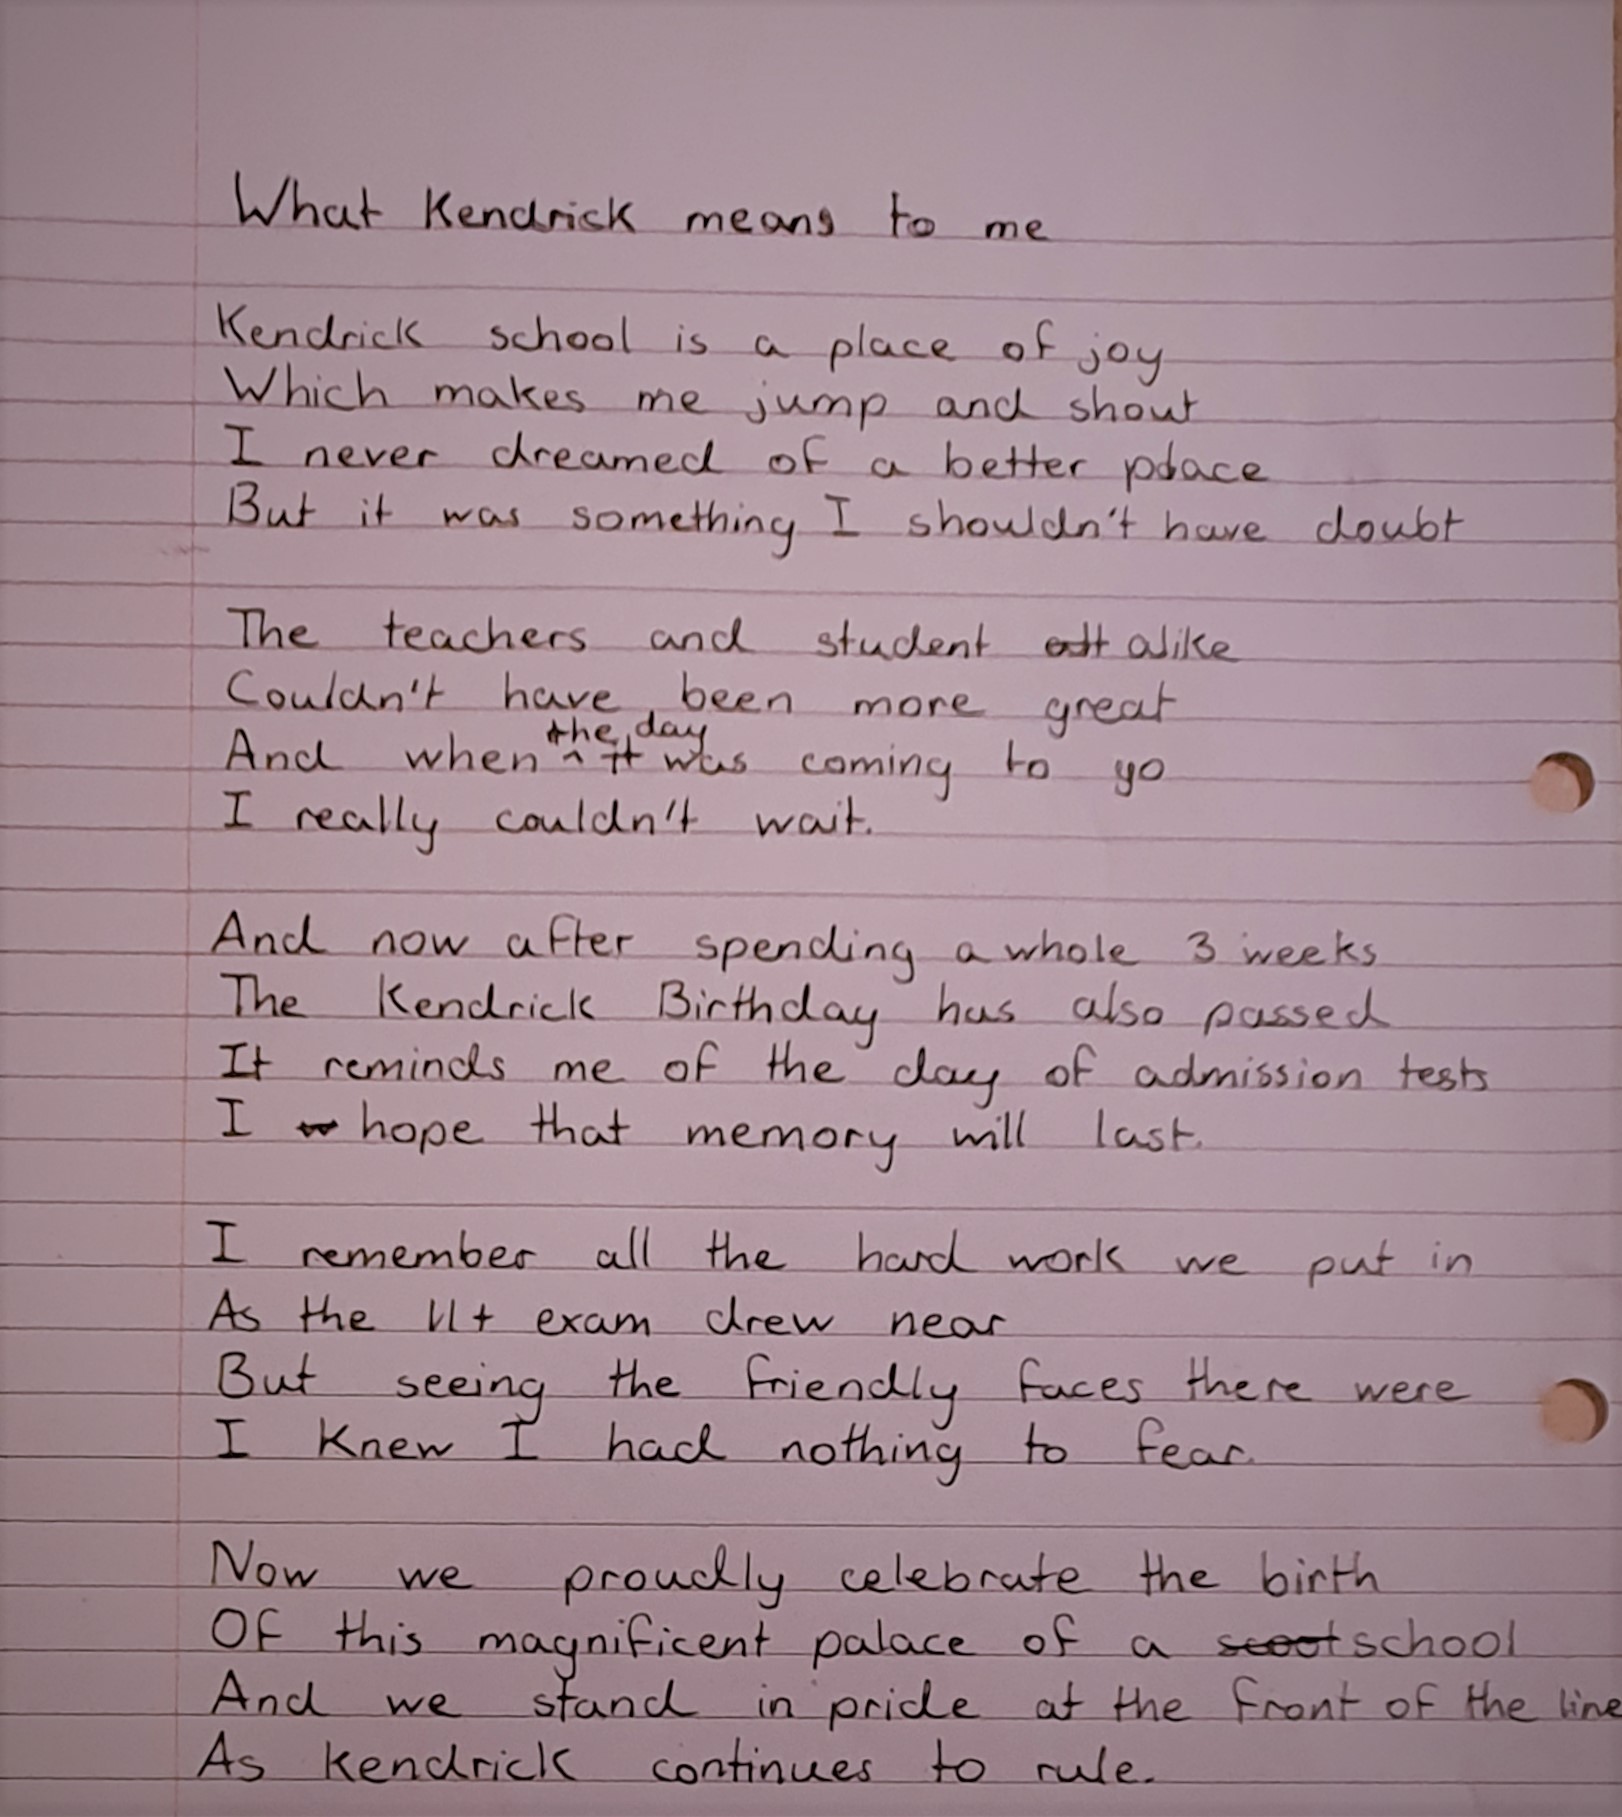 What Kendrick means to me
Kendrick school is a place of joy
Which makes me jump and shout
I never dreamed of a better place
But it was something I shouldn't have doubt
The teachers and student alike
Couldn't have been more great
And when the day was coming to go
I really couldn't wait.
And now after spending a whole 3 weeks
The Kendrick Birthday has also passed
It reminds me of the day of admission tests
I hope that memory will last.
I remember all the hard work we put in
As the 11+ exam drew near
But seeing the friendly faces there were
I knew I had nothing to fear.
Now we proudly celebrate the birth
Of this magnificent palace of a school
And we stand in pride at the front of the line
As Kendrick continues to rule.